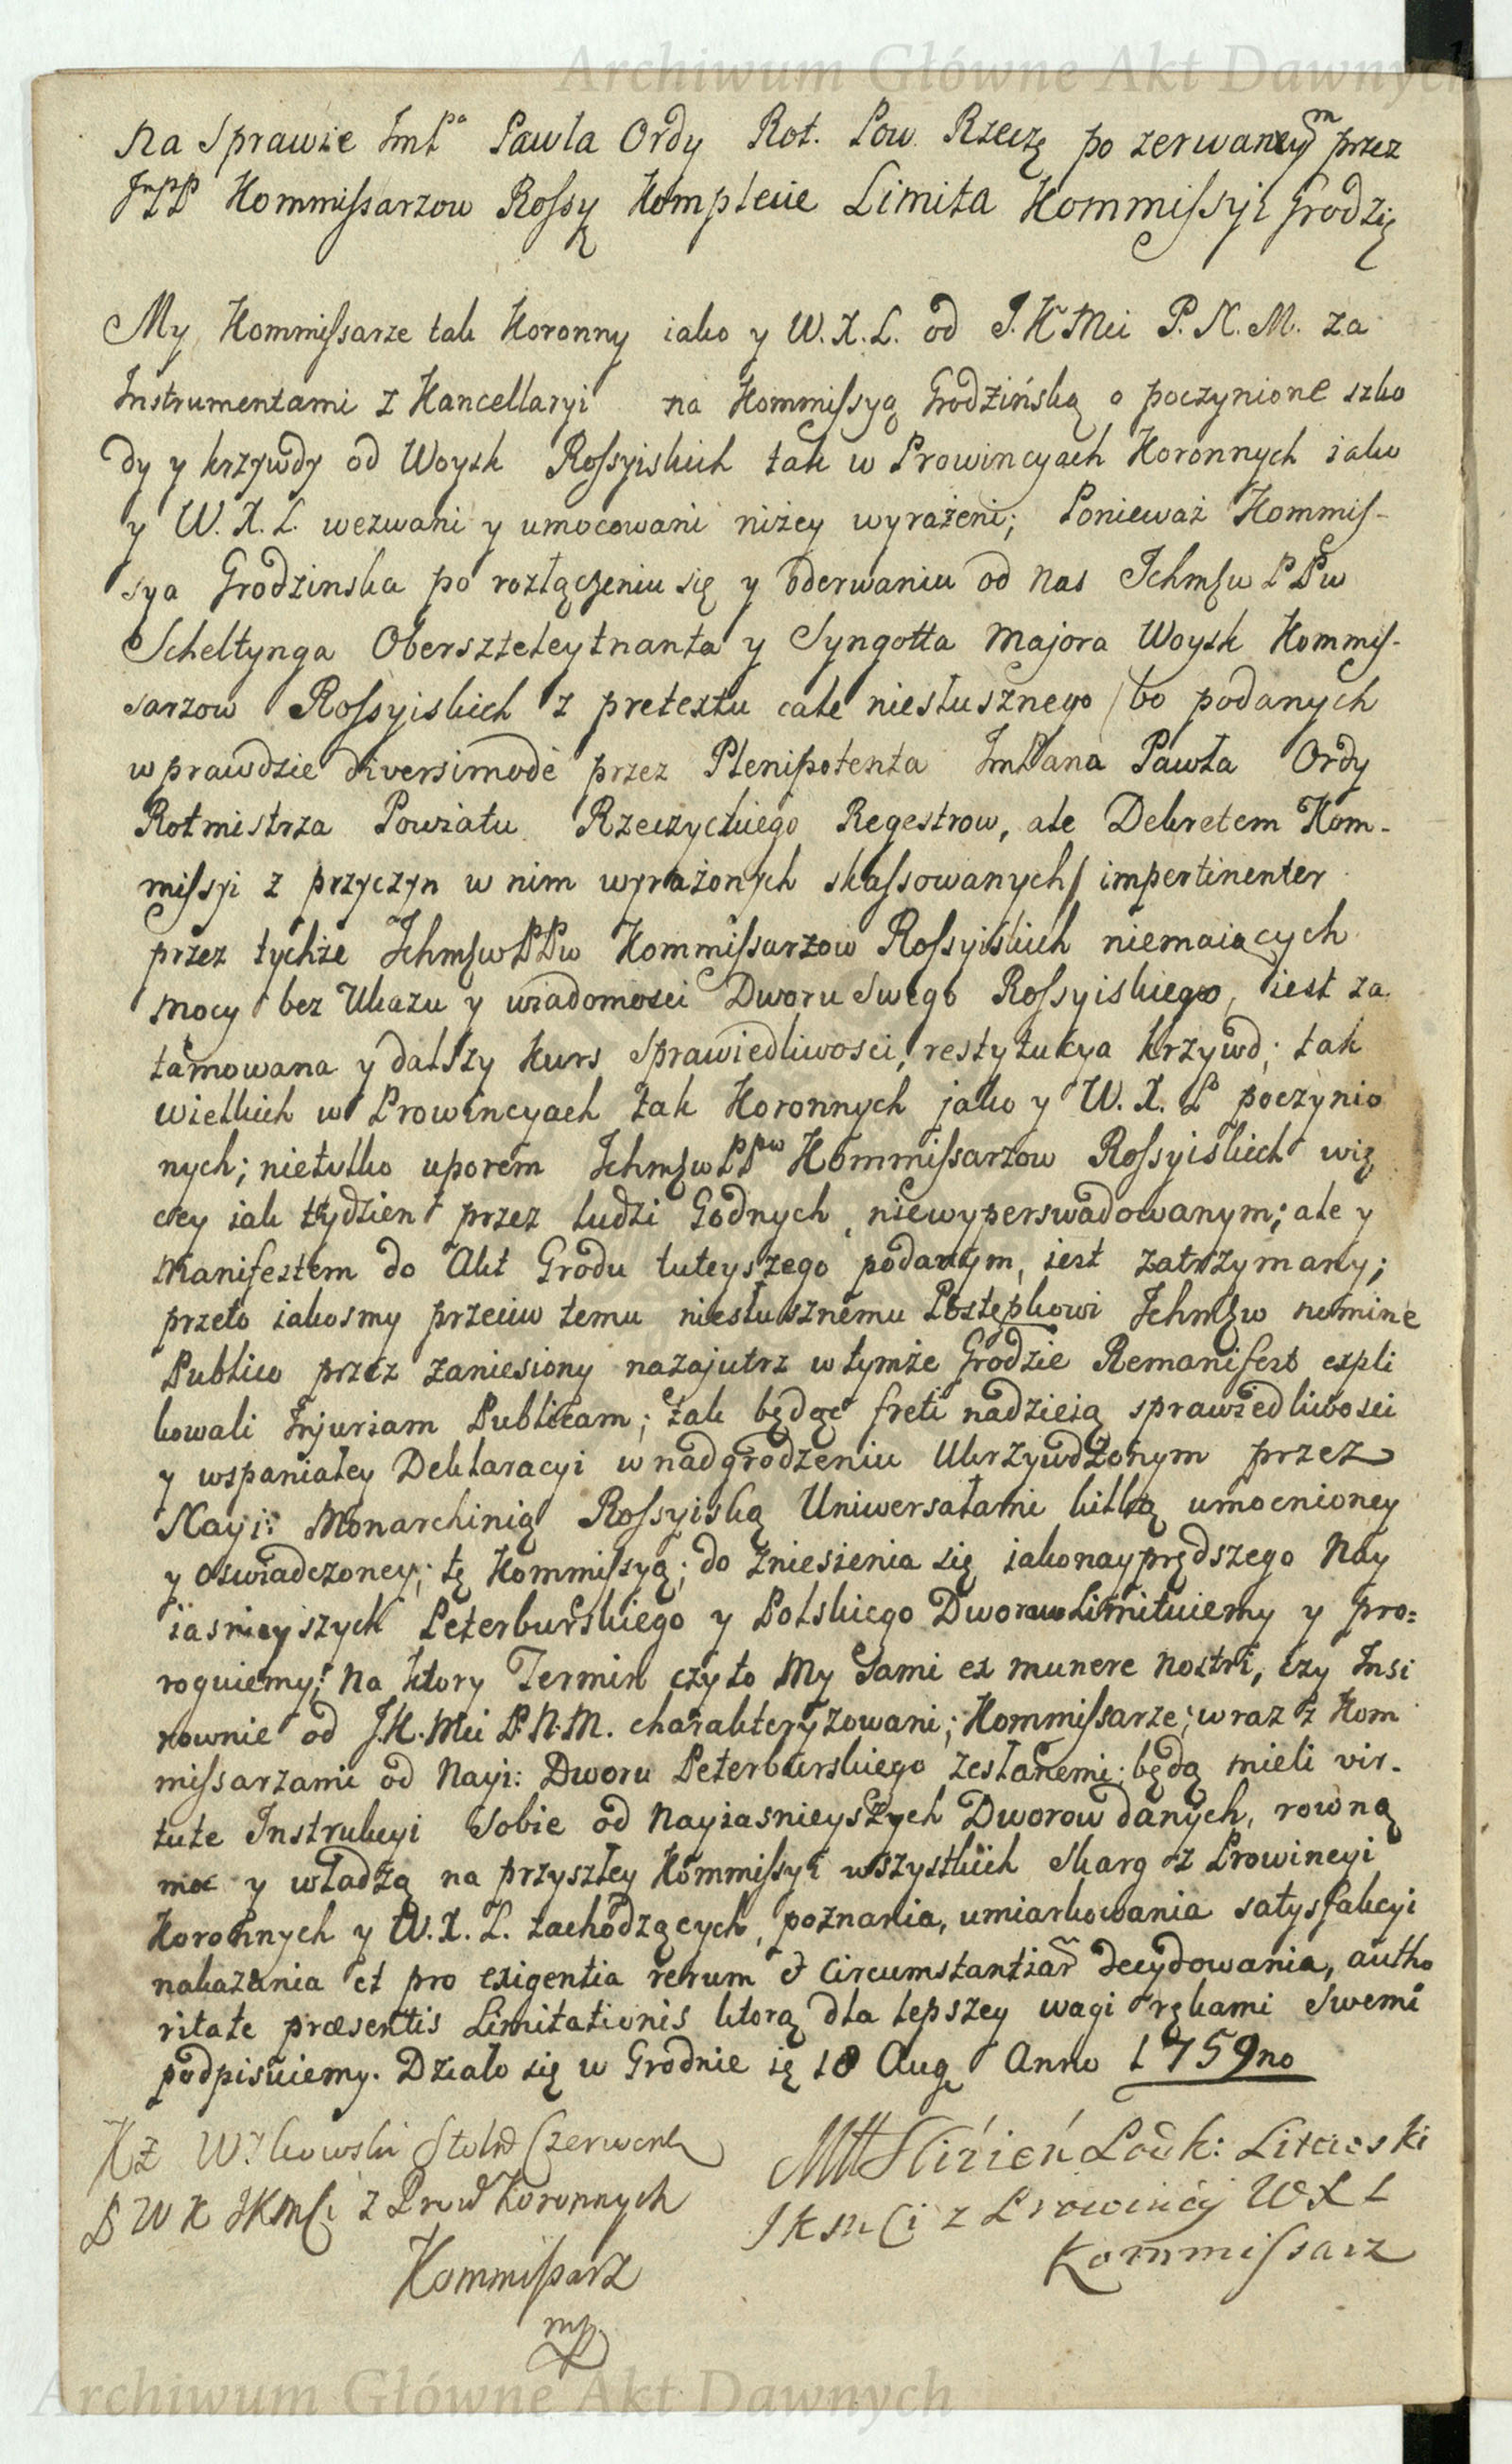 Archiwum Główne Akt Dawnych
Na Sprawie ImPa Pawla Ordy Rot. Pow. Rzeczę po zerwanym przez
JmPP Kommissarzow Rossyę Komplecie Limita Kommissyi Grodzię
My Kommissarze tak Koronny iako y W. X. L. od J. K Mci P. N. M. za
Instrumentami z Kancellaryi na Kommissyą Grodzińską o poczynione szko
dy y krzywdy od Woysk Rossyiskich tak w Prowincyach Koronnych iako
y W. X. L. wezwani y umocowani niżey wyrażeni; Ponieważ Kommis-
sya Grodzinska po rozłączeniu się y oderwaniu od nas Ichmśw PPw
Scheltynga Oberszteleytnanta y Syngotta Majora Woysk Kommis-
sarzow Rossyiskich z pretextu cale niesłusznego /bo podanych
wprawdzie diversimodè przez Plenipotenta ImPana Pawła Ordy
Rotmistrza Powiatu Rzeczyckiego Regestrow, ale Dekretem Kom-
missyi z przyczyn w nim wyrażonych skassowanych/ impertinenter
przez tychże Ichmśw PPw Kommissarzow Rossyiskich niemaiących
mocy bez Ukazu y wiadomosci Dworu Swego Rossyiskiego, iest za
tamowana y dalszy kurs Sprawiedliwosci, restytucya krzywd; tak
wielkich w Prowincyach tak Koronnych jako y W. X. L poczynio
nych; nietylko uporem Ichmśw PPw Kommissarzow Rossyiskich wię
cey iak tydzien przez ludzi Godnych, niewyperswadowanym; ale y
Manifestem do Akt Grodu tuteyszego podanym, iest zatrzymany;
przeto iakosmy przeciw temu niesłusznemu Postępkowi Ichmśw nomine
Publico przez zaniesiony nazajutrz w tymże Grodzie Remanifest expli
kowali Injuriam Publicam; tak będąc freti nadzieią sprawiedliwosci
y wspaniałey Deklaracyi w nadgrodzeniu Ukrzywdzonym przez
Nayi: Monarchinią Rossyiską Uniwersałami kilką umocnioney
y oswiadczoney; tę Kommissyą; do zniesienia się iakonayprędszego Nay
iasnieyszych Peterburskiego y Polskiego Dworow Limituiemy y pro=
roguiemy; Na ktory Termin czyto My Sami ex munere nostri, czy Insi
rownie od J.K.Mci P.N.M. charakteryzowani; Kommissarze; wraz z Kom
missarzami od Nayi: Dworu Peterburskiego zesłanemi; będą mieli vir-
tute Instrukcyi Sobie od Nayiasnieyszych Dworow danych, rowną
moc y władzą na przyszłey Kommissyi wszystkich Skarg z Prowincyi
Koronnych y W. X. L. zachodzących, poznania, umiarkowania satysfakcyi
nakazania et pro exigentia rerum et Circumstantiar decydowania, autho
ritate præsentis Limitationis ktorą dla lepszey wagi rękami Swemi
podpisuiemy. Działo się w Grodnie ię 18 Augę Anno 1759no
Stoln Czerwon
P W K JKMści z Prow Koronnych
Kommissarz
mp.
Litewski
JKMści z Prowincÿ WXL
Kommissarz
Archiwum Główne Akt Dawnych